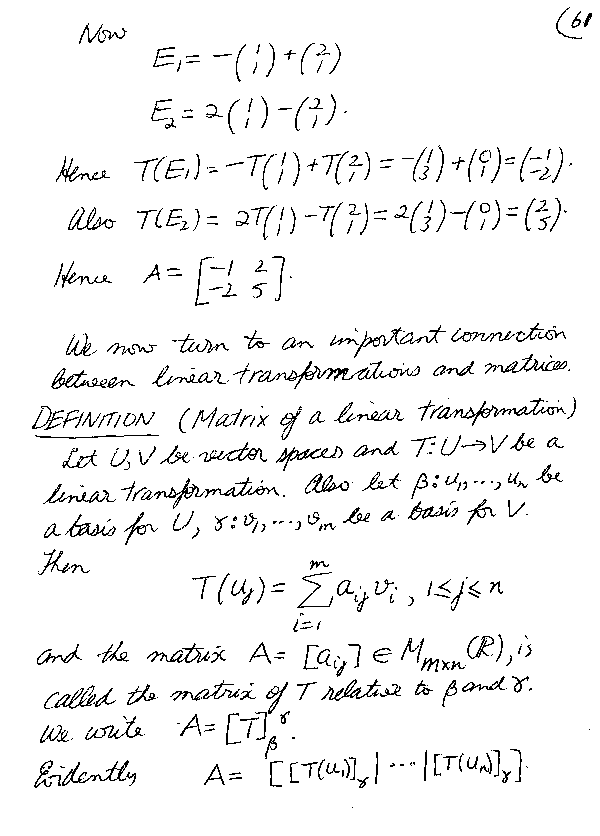 (61
Now
E₁ = −(1 1) + (2 1)
E₂ = 2(1 1) − (2 1).
Hence T(E₁) = −T(1 1) + T(2 1) = −(1 3) + (0 1) = (−1 −2).
Also T(E₂) = 2T(1 1) − T(2 1) = 2(1 3) − (0 1) = (2 5).
Hence A = [−1 2 −2 5].
We now turn to an important connection
between linear transformations and matrices.
DEFINITION (Matrix of a linear transformation)
Let U, V be vector spaces and T: U → V be a
linear transformation. Also let β: u₁, ..., uₙ be
a basis for U, γ: v₁, ..., vₘ be a basis for V.
Then
T(uⱼ) = ∑ᵢ₌₁ᵐ aᵢⱼ vᵢ , 1 ≤ j ≤ n
and the matrix A = [aᵢⱼ] ∈ Mₘₓₙ(ℝ), is
called the matrix of T relative to β and γ.
We write A = [T]_β^γ.
Evidently A = [[T(u₁)]_γ | ... | [T(uₙ)]_γ].